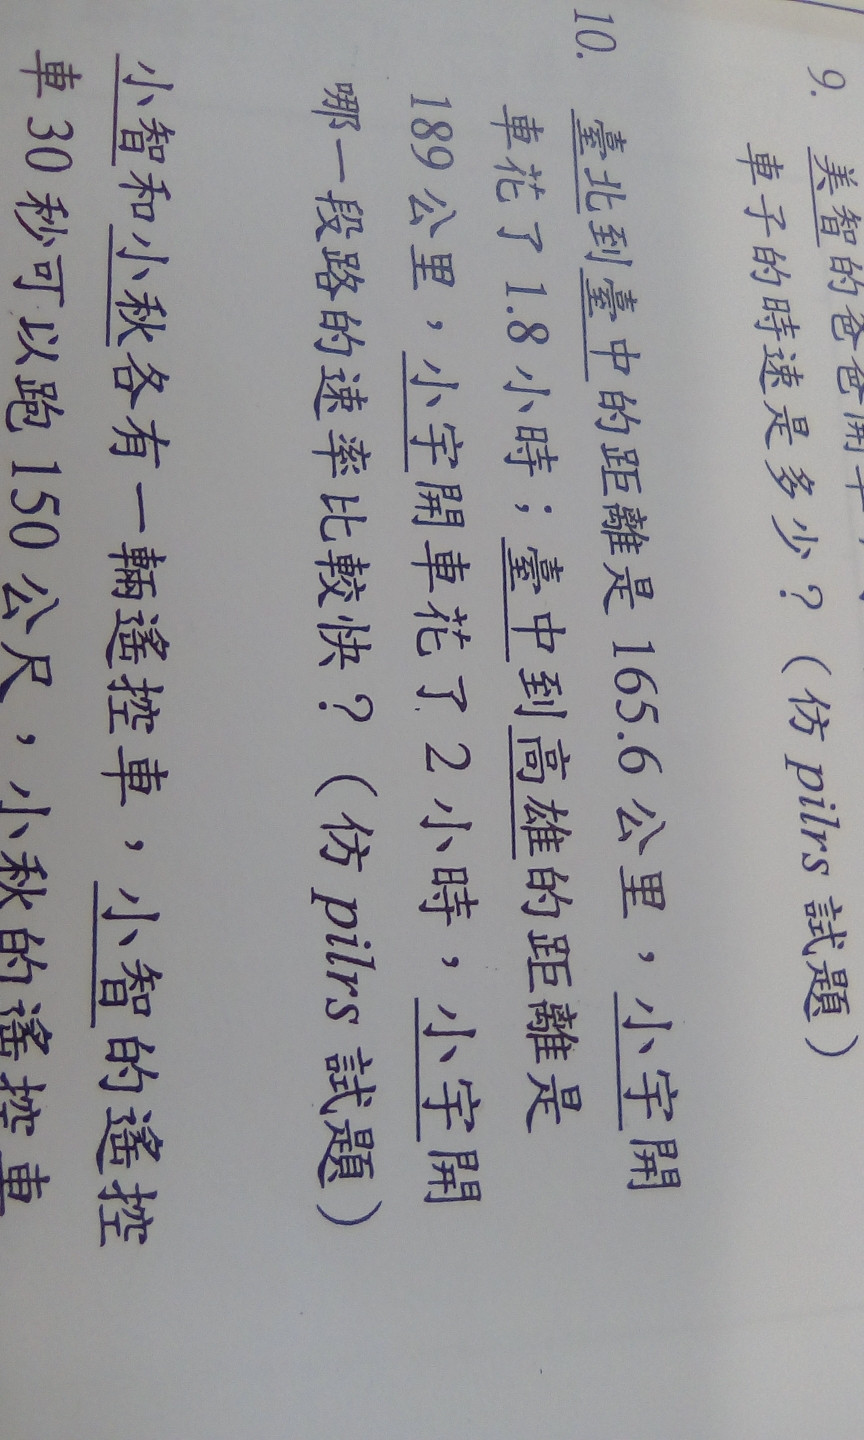 9. 美智的爸爸開車
車子的時速是多少？（仿 pilrs 試題）
10. 臺北到臺中的距離是 165.6 公里，小宇開
車花了 1.8 小時；臺中到高雄的距離是
189 公里，小宇開車花了 2 小時，小宇開
哪一段路的速率比較快？（仿 pilrs 試題）
小智和小秋各有一輛遙控車，小智的遙控
車 30 秒可以跑 150 公尺，小秋的遙控車